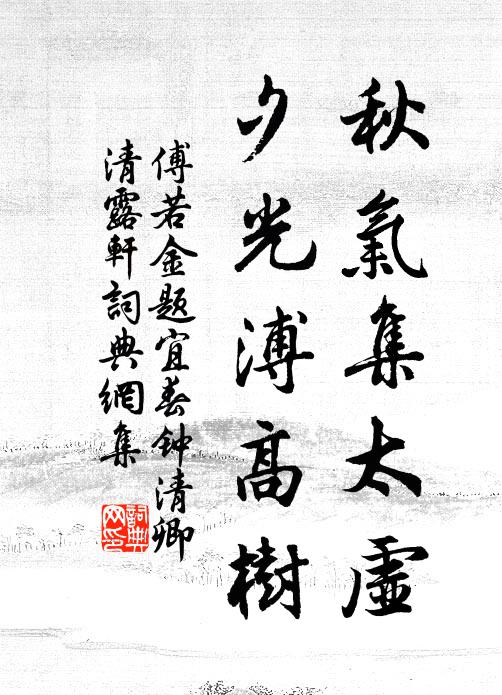 秋氣集太虛
夕光溥高樹
傅若金題宜春钟清卿
清露軒詞典網集
詞典
网印